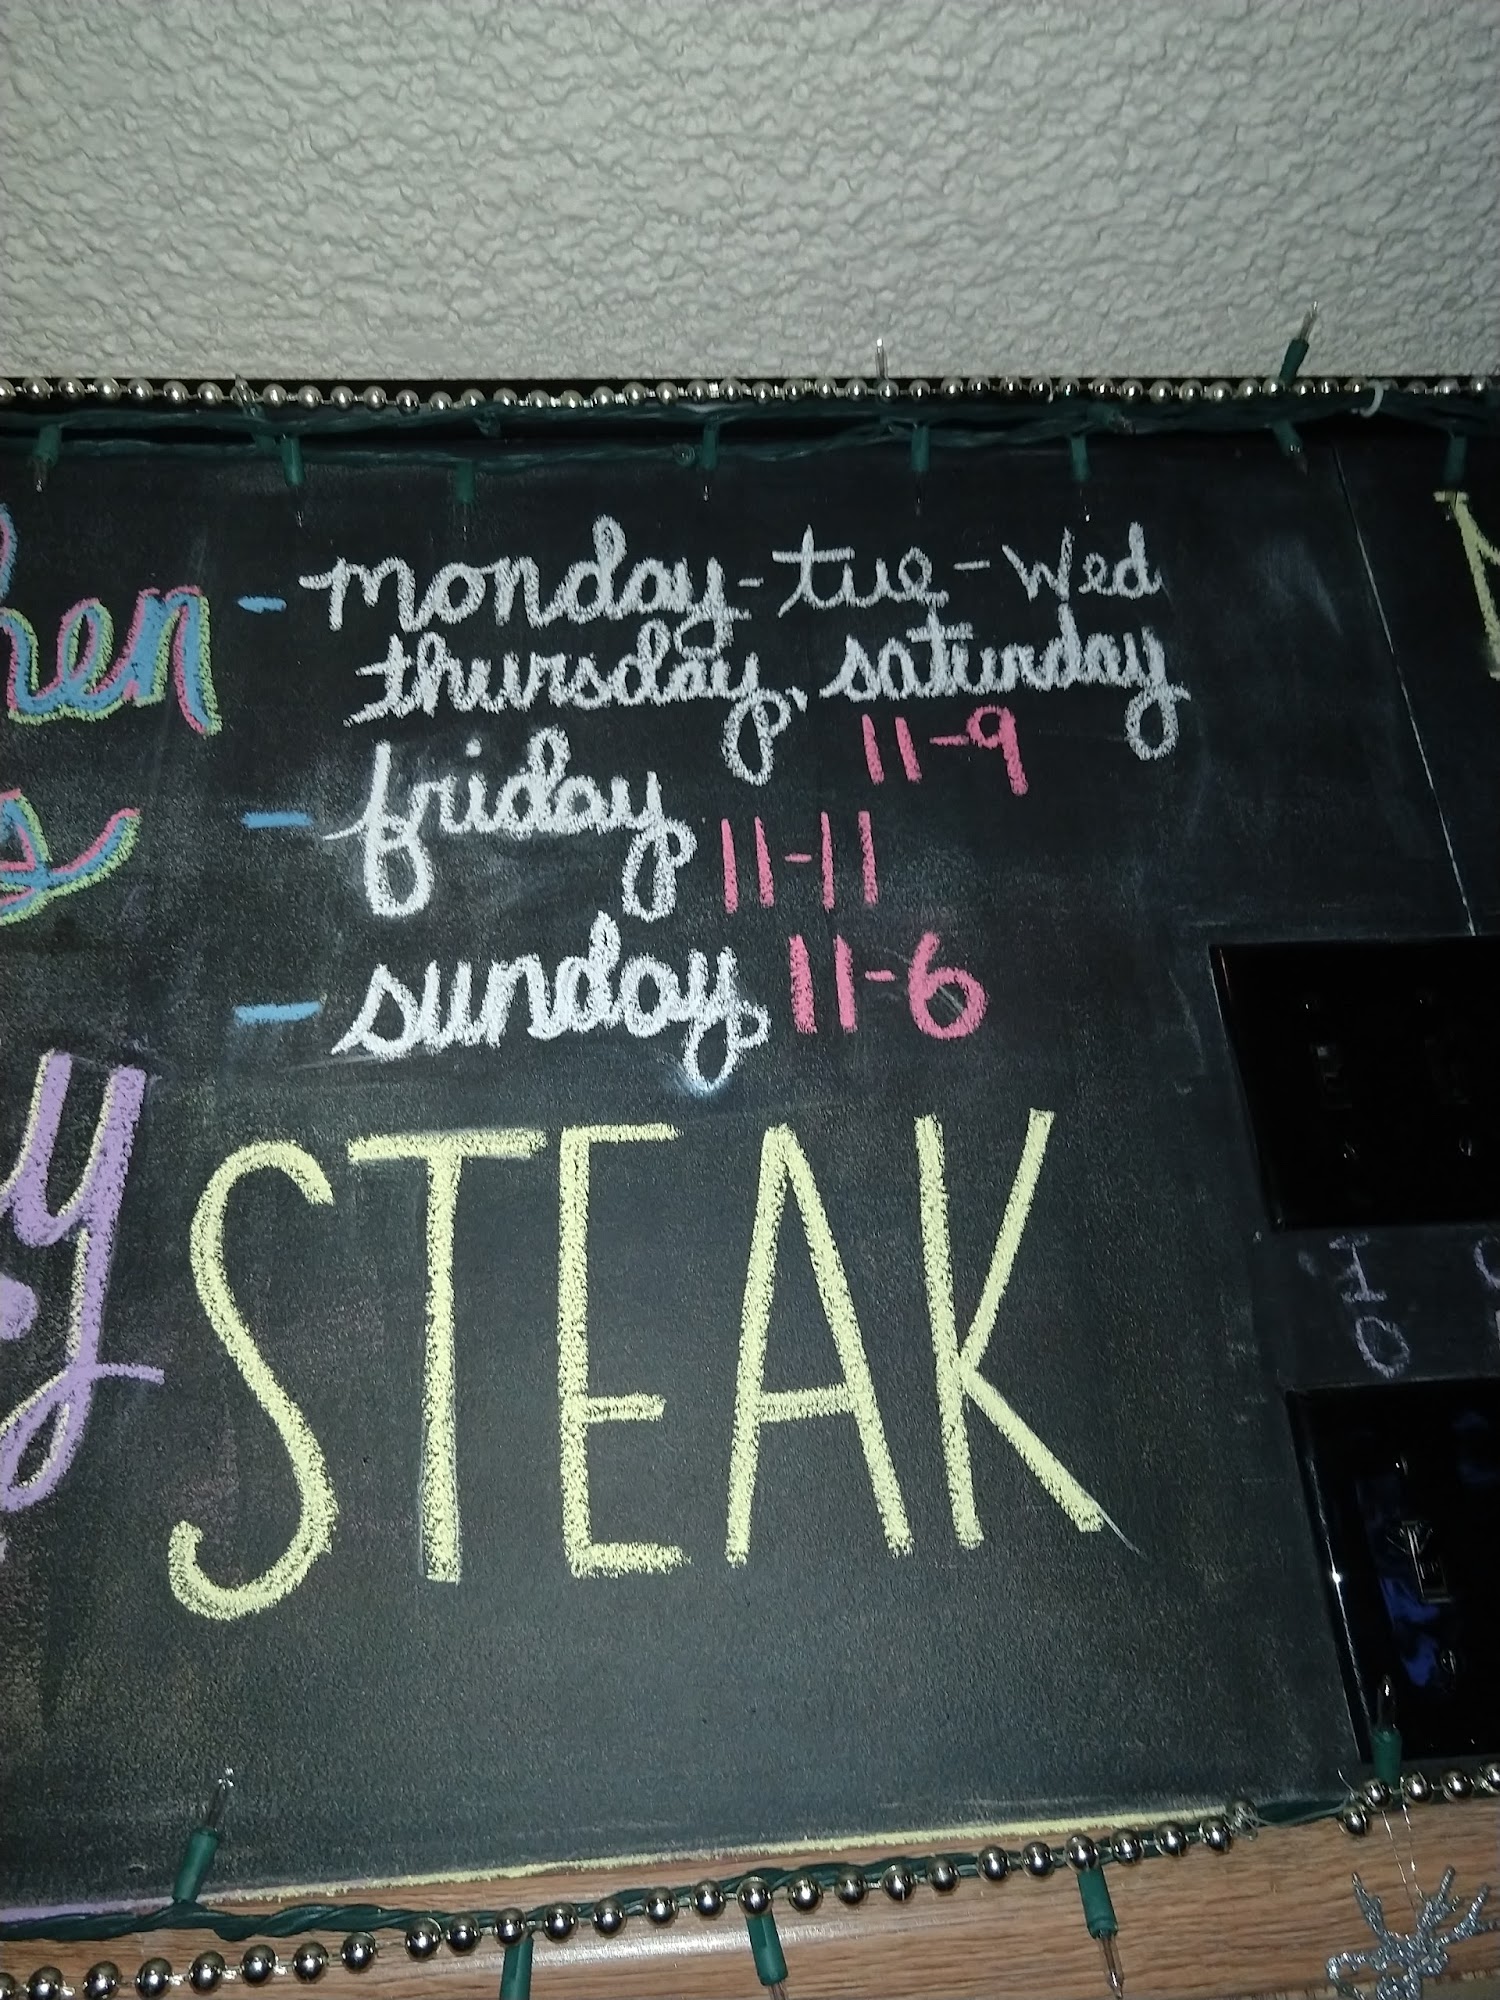 - monday - tue - wed
thursday, saturday
11-9
- friday 11-11
- sunday 11-6
STEAK